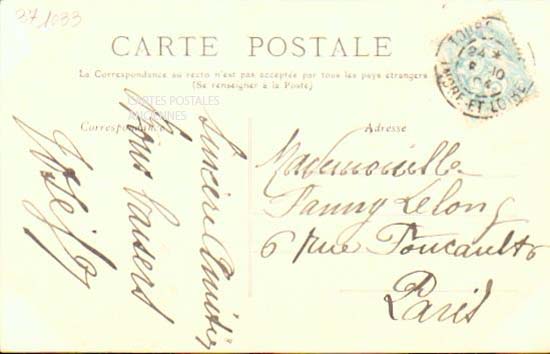 37 1033
CARTE POSTALE
La Correspondance au recto n'est pas acceptée par tous les pays étrangers
(Se renseigner à la Poste)
CARTES POSTALES
ANCIENNES
Correspondance
Adresse
TOURS
24 *
8 10
04
INDRE-ET-LOIRE
Sincère Amitié
Bons baisers
Mademoiselle
Fanny Lelong
6 rue Foucault 6
Paris